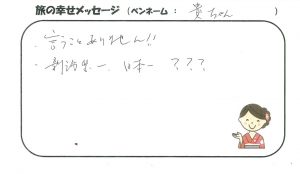 旅の幸せメッセージ（ペンネーム： 貴ちゃん ）
・言うことありません!!
・新潟県一、日本一 ???